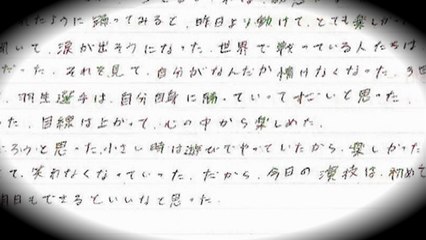 れたように踊ってみると、昨日より動けて、とても楽しかっ
聞いて、涙が出そうになった。世界で戦っている人たちは
だった。それを見て、自分がなんだか情けなくなった。
羽生選手は、自分自身に勝っていってすごいと思った。
った。目線は上がって、心の中から楽しめた。
ろうと思った。小さい時は遊びでやっていたから、楽しかった
て、笑わなくなっていった。だから、今日の演技は、初めて
明日もできるといいなと思った。